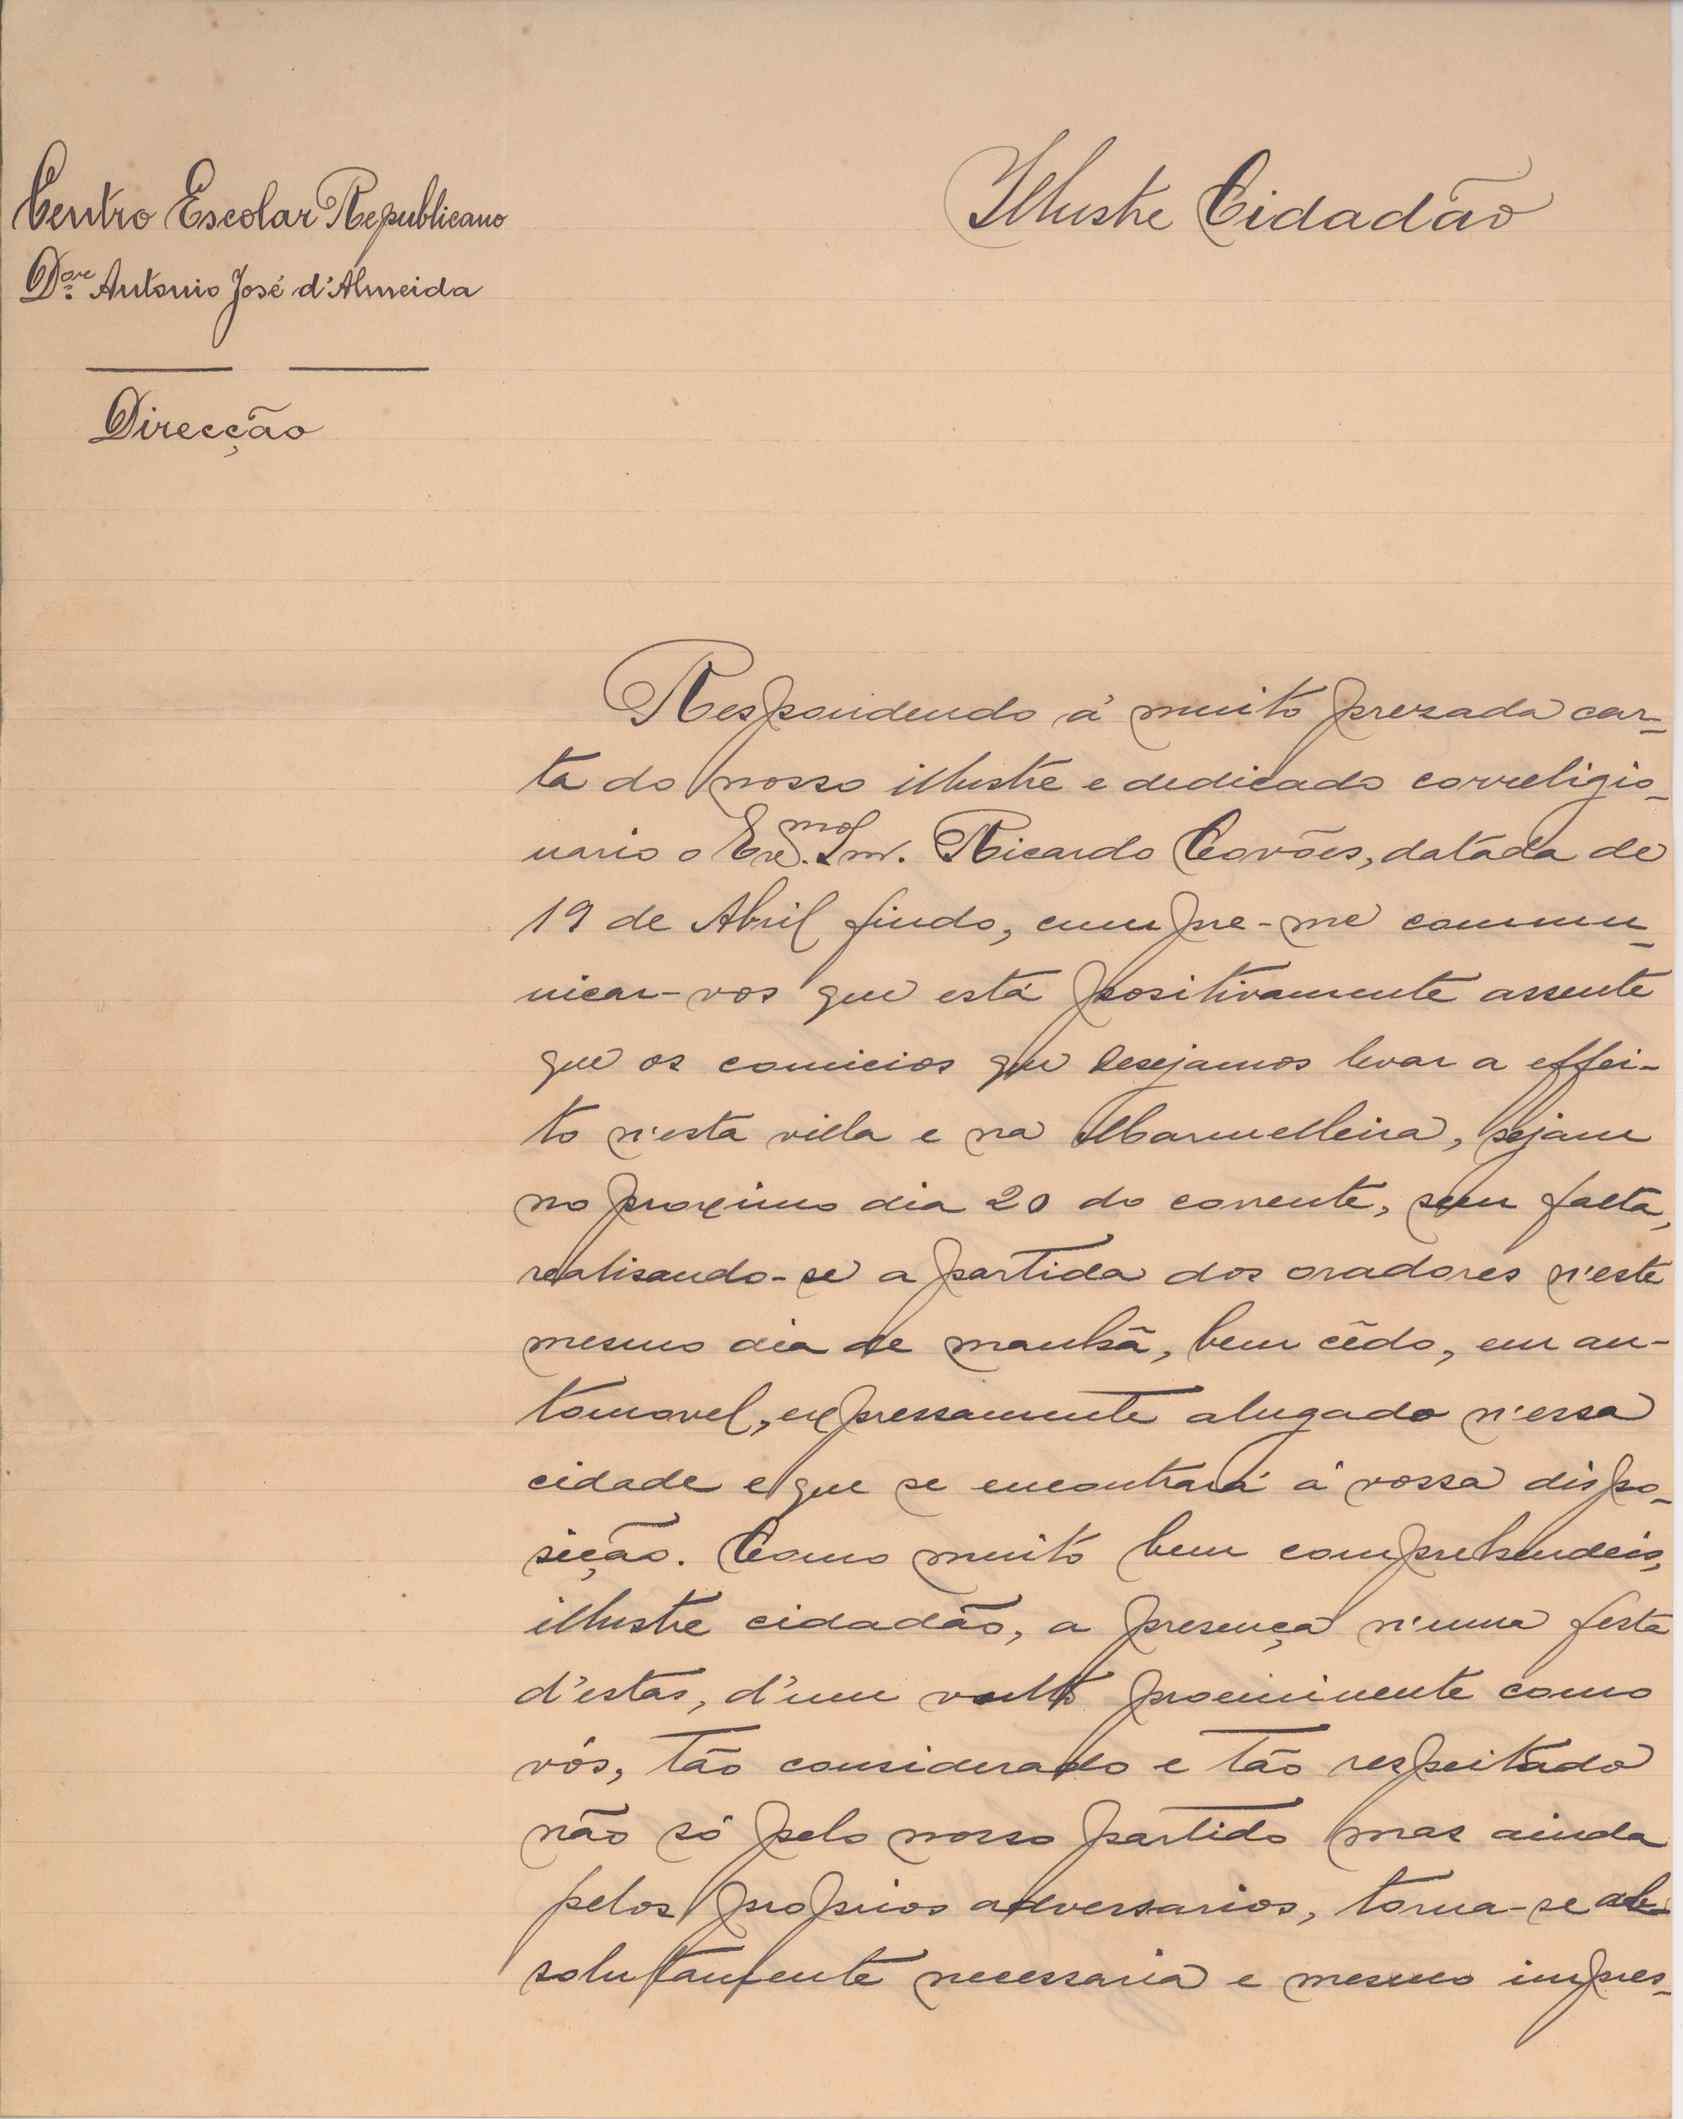 Centro Escolar Republicano
Dor. Antonio José d'Almeida
Direcção
Illustre Cidadão
Respondendo á muito prezada car-
ta do nosso illustre e dedicado correligio-
nario o Exmo. Snr. Ricardo Covões, datada de
19 de Abril findo, cumpre-me commu-
nicar-vos que está positivamente assente
que os comicios que desejamos levar a effei-
to n'esta villa e na Marmelleira, sejam
no proximo dia 20 do corrente, sem falta,
realisando-se a partida dos oradores n'este
mesmo dia de manhã, bem cêdo, em au-
tomovel, expressamente alugado n'essa
cidade e que se encontrará á vossa dispo-
sição. Como muito bem comprehendeis,
illustre cidadão, a presença n'uma festa
d'estas, d'um vulto proeminente como
vós, tão considerado e tão respeitado
não só pelo nosso partido mas ainda
pelos proprios adversarios, torna-se ab-
solutamente necessaria e mesmo impres-